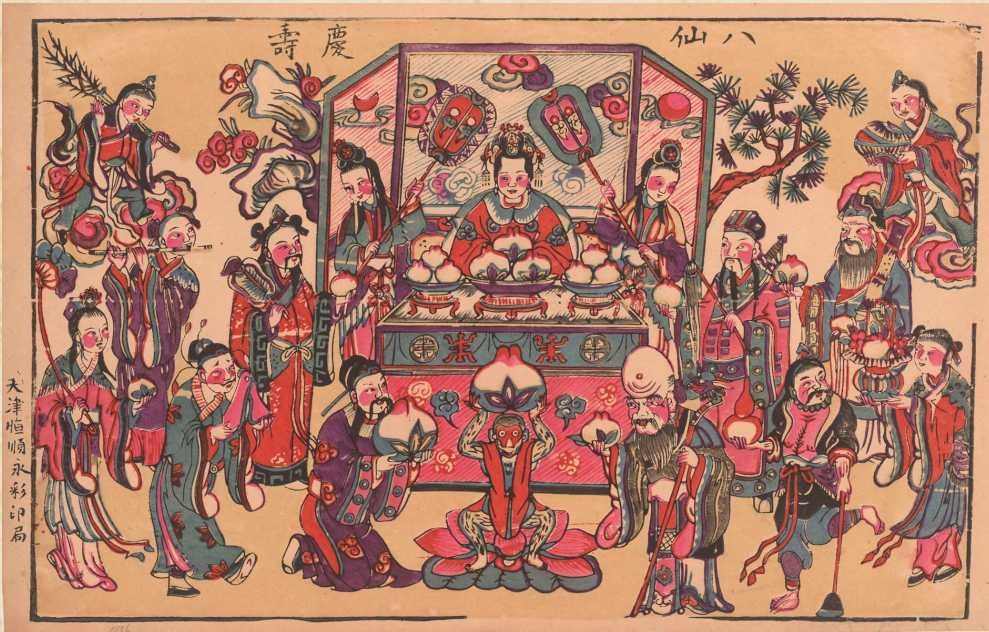 八仙
慶壽
天津恒順永彩印局